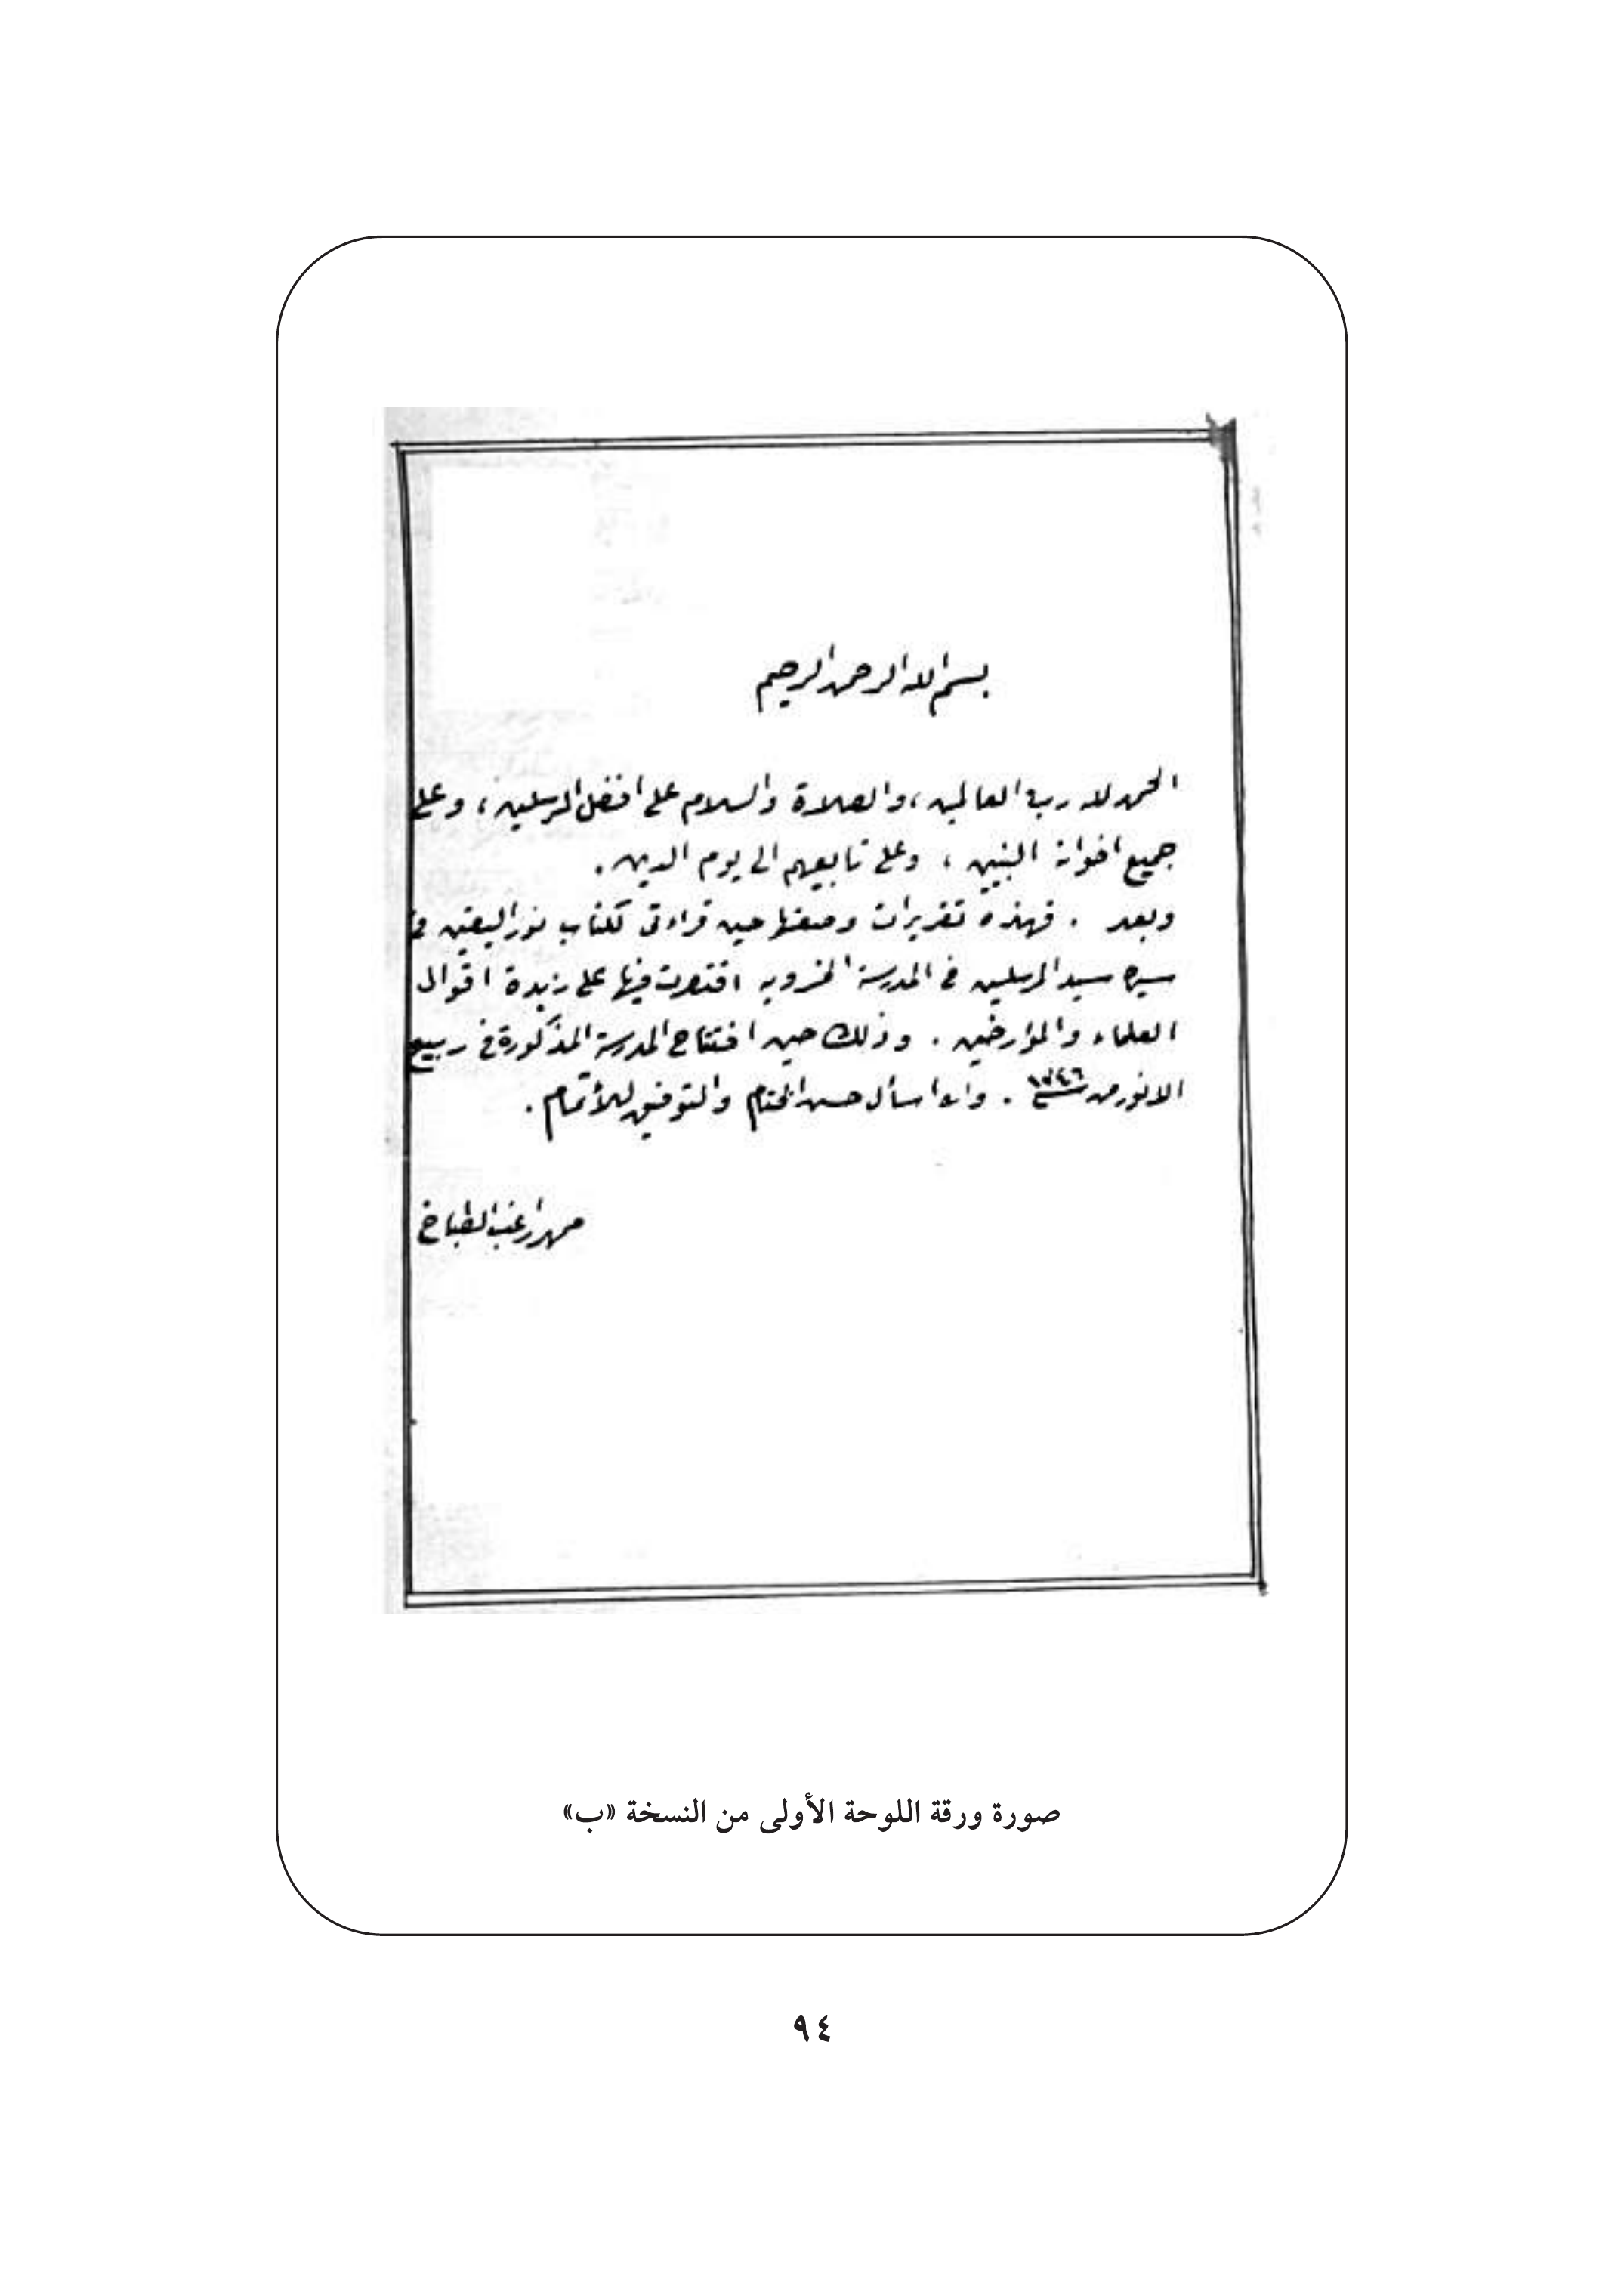 بسم الله الرحمن الرحيم
الحمد لله رب العالمين ، والصلاة والسلام على افضل المرسلين ، وعلى
جميع اخوانه النبيين ، وعلى تابعيهم الى يوم الدين .
وبعد . فهذه تقريرات وضعتها حين قراءتى لكتاب نور اليقين فى
سيرة سيد المرسلين فى المدرسة الخسرويه اقتصرت فيها على زبدة اقوال
العلماء والمؤرخين . وذلك حين افتتاح المدرسة المذكورة فى ربيع
الانور من سنة ١٣٤٦ . والله اسأل حسن الختام والتوفيق للأتمام .
محمد راغب الطباخ
صورة ورقة اللوحة الأولى من النسخة «ب»
٩٤